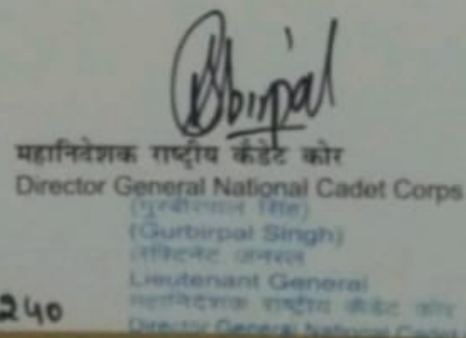 Gbirpal
महानिदेशक राष्ट्रीय कैडेट कोर
Director General National Cadet Corps
(गुरबीरपाल सिंह)
(Gurbirpal Singh)
लेफ्टिनेंट जनरल
Lieutenant General
240
महानिदेशक राष्ट्रीय कैडेट कोर
Director General National Cadet